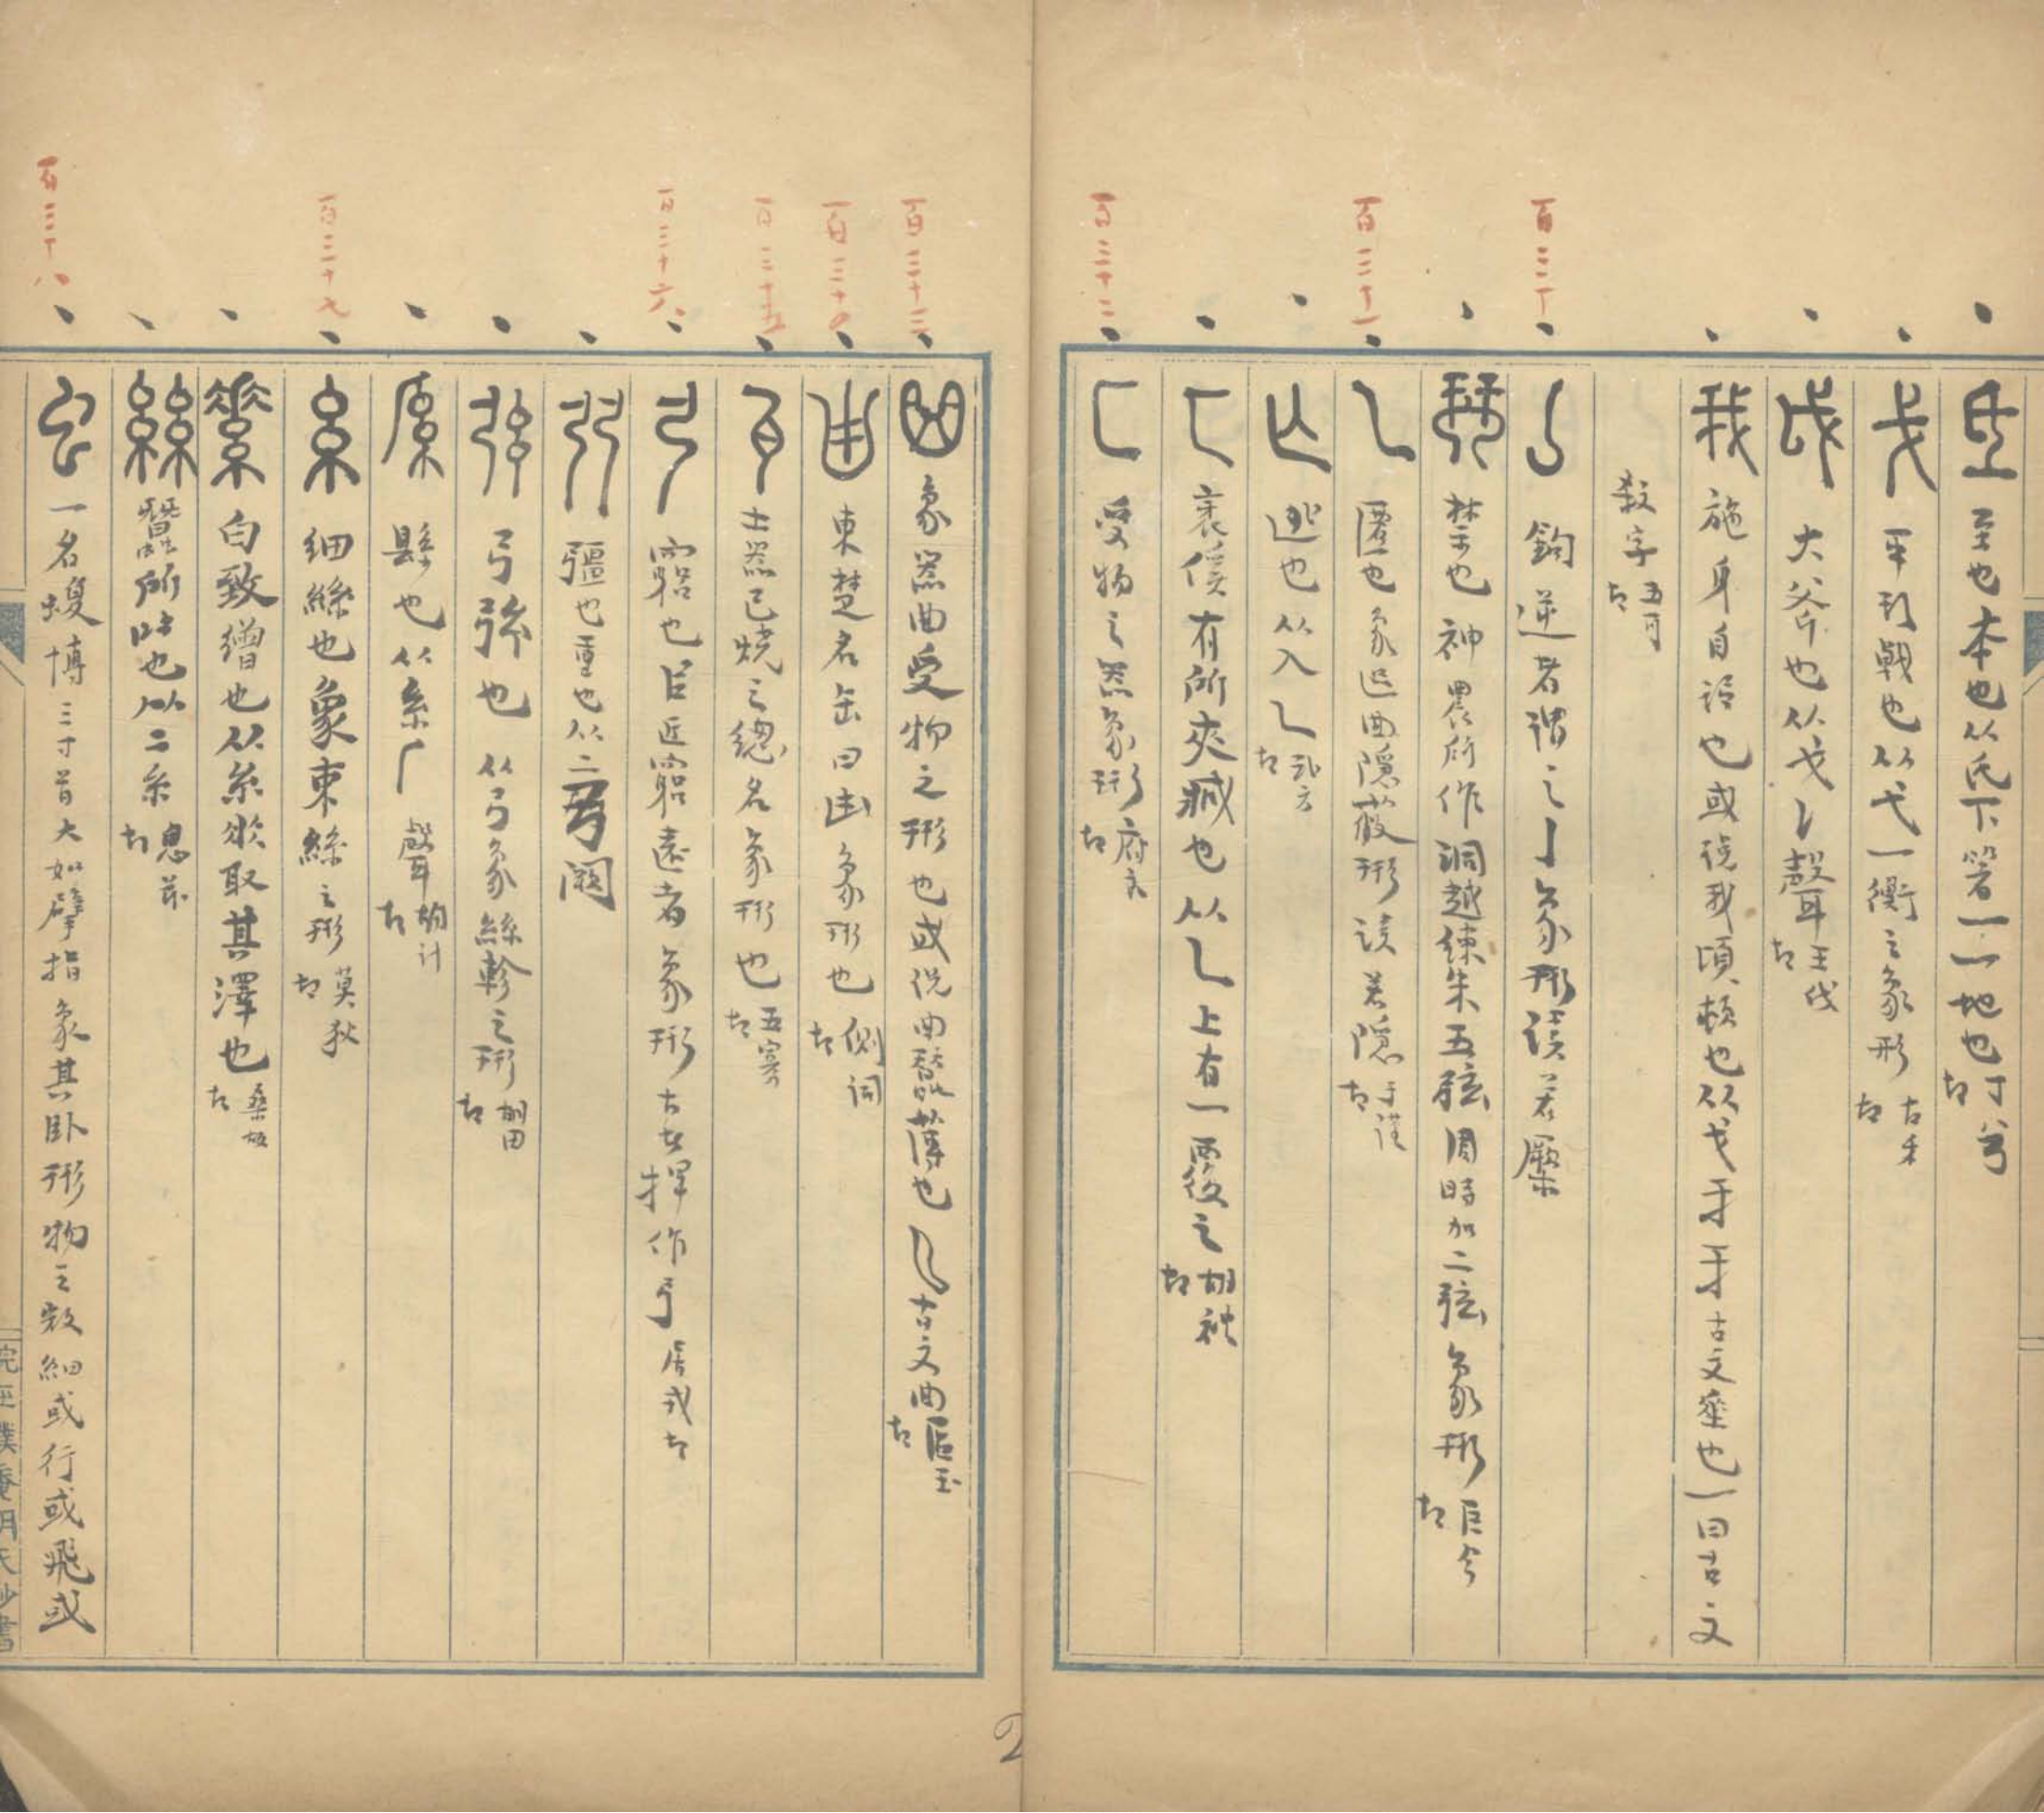 百三十
百三十一
百三十二
氐 至也本也从氏下箸一一地也丁兮切
戈 平頭戟也从弋一衡之象形古禾切
戉 大斧也从戈𠄌聲王伐切
我 施身自謂也或說我頃頓也从戈手手古文垂也一曰古文
殺字五可切
亅 鉤逆者謂之亅象形讀若橜
琴 禁也神農所作洞越練朱五弦周時加二弦象形巨今切
𠃊 匿也象迟曲隱蔽形讀若隱于謹切
亾 逃也从入𠃊武方切
匸 衺徯有所夾藏也从𠃊上有一覆之胡礼切
匚 受物之器象形府方切
百三十三
百三十四
百三十五
百三十六
百三十七
百三十八
曲 象器曲受物之形也或說曲蠶薄也𠃊古文曲區玉切
甾 東楚名缶曰甾象形也側詞切
瓦 土器已燒之總名象形也五寡切
弓 窮也以近窮遠者象形古者揮作弓居戎切
弜 彊也重也从二弓闕
弦 弓弦也从弓象絲軫之形胡田切
系 縣也从糸𠂆聲胡计切
糸 細絲也象束絲之形莫狄切
素 白致繒也从糸𠂹取其澤也桑故切
絲 蠶所吐也从二糸息兹切
虫 一名蝮博三寸首大如擘指象其臥形物之數細或行或飛或
2